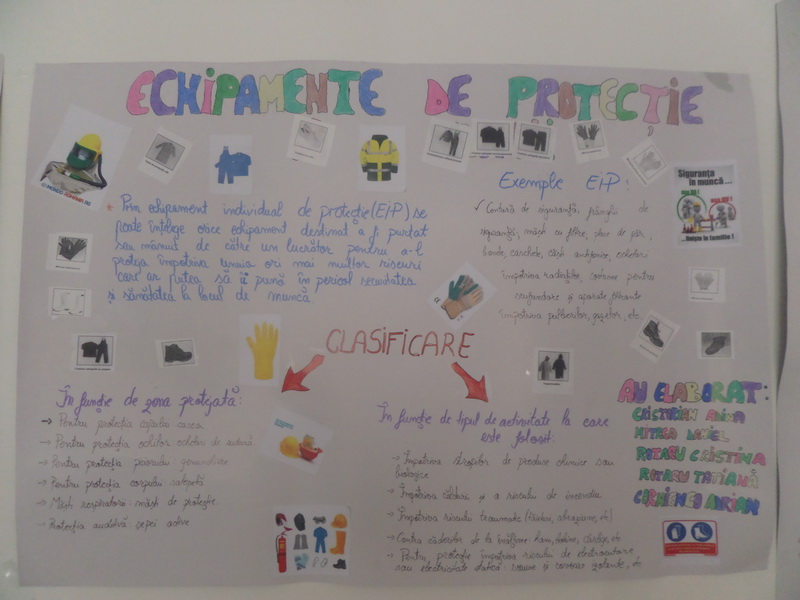 ECHIPAMENTE DE PROTECȚIE
* Prin echipament individual de protecție (EIP) se
poate înțelege orice echipament destinat a fi purtat
sau mânuit de către un lucrător pentru a-l
proteja împotriva unuia ori mai multor riscuri
care ar putea să îi pună în pericol securitatea
și sănătatea la locul de muncă
Exemple EIP:
✓ Centură de siguranță, frânghii de
siguranță, măști cu filtre, plase de păr,
bonete, căști antifonice, ochelari
împotriva radiațiilor, costume pentru
scufundare și aparate filtrante
împotriva pulberilor, gazelor, etc.
Siguranța
în muncă....
...liniștea în familie!
CLASIFICARE
În funcție de zona protejată:
→ Pentru protecția capului casca
→ Pentru protecția ochilor ochelari de sudură
→ Pentru protecția piciorului genunchiere
→ Pentru protecția corpului salopetă
→ Măști respiratorii: măști de protecție
→ Protecția auditivă: șepci active
În funcție de tipul de activitate la care
este folosit:
→ Împotriva stropilor de produse chimice sau
biologice
→ Împotriva căldurii și a riscului de incendiu
→ Împotriva riscului traumatic (tăieturi, abraziune, etc)
→ Contra căderilor de la înălțime: ham, cârlige, etc
→ Pentru protecție împotriva riscului de electrocutare,
sau electricitate statică: covoare izolante, etc
AU ELABORAT:
CRISTURIAN ALINA
MITREA DANIEL
ROTARU CRISTINA
ROTARU TATIANĂ
ADRIAN